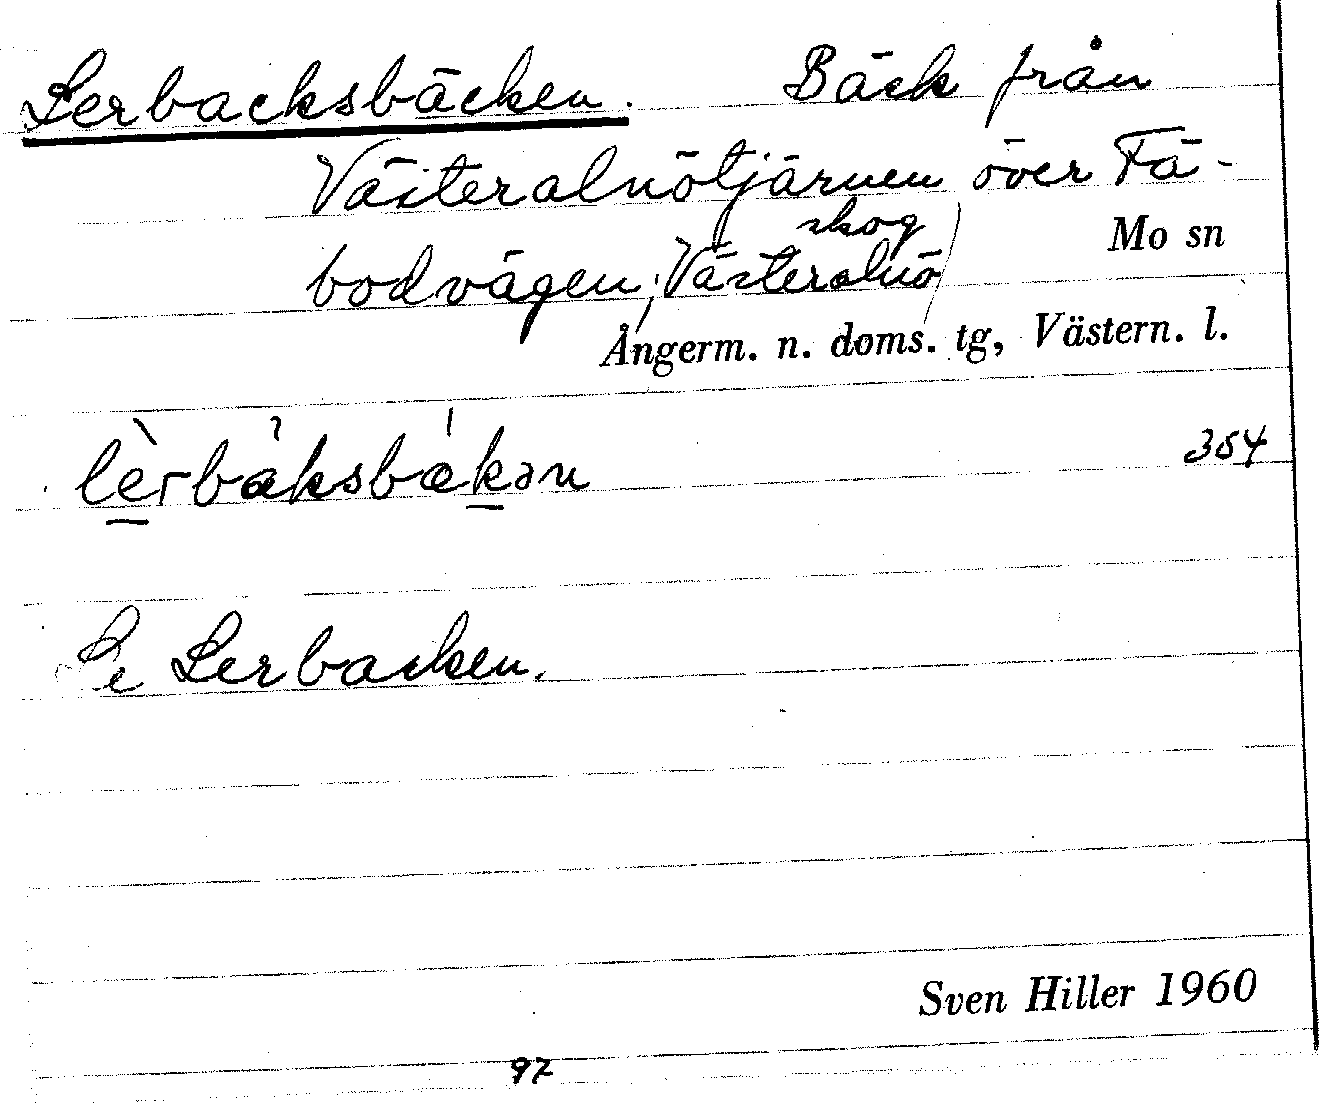 Lerbacksbäcken. Bäck från
Västeralnötjärnen över Fä-
skog
bodvägen, Västeralnö
Mo sn
Ångerm. n. doms. tg, Västern. l.
lèrbàksbákən
354
Se Lerbacken.
Sven Hiller 1960
97